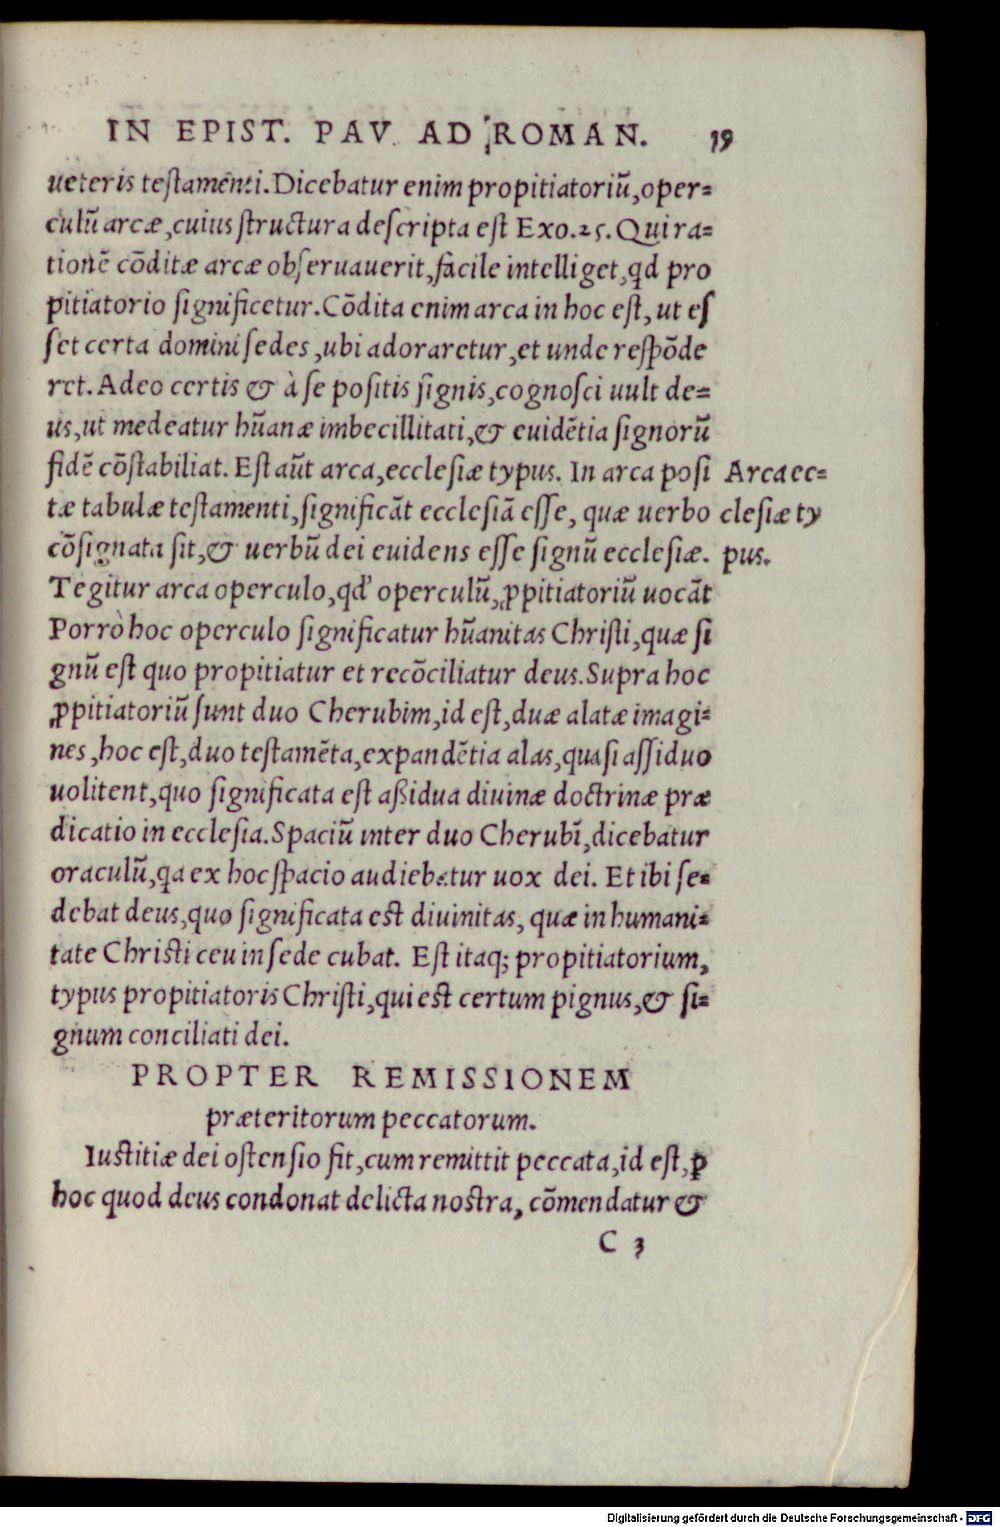 IN EPIST. PAV. AD ROMAN. 19
ueteris teſtamenti. Dicebatur enim propitiatoriũ, oper=
culũ arcæ, cuius ſtructura deſcripta eſt Exo. 25. Qui ra=
tionẽ cõditæ arcæ obſeruauerit, facile intelliget, qd pro
pitiatorio ſignificetur. Cõdita enim arca in hoc eſt, ut eſ
ſet certa domini ſedes, ubi adoraretur, et unde reſpõde
ret. Adeo certis & à ſe poſitis ſignis, cognoſci uult de=
us, ut medeatur hũanæ imbecillitati, & euidẽtia ſignorũ
fidẽ cõſtabiliat. Eſt aũt arca, eccleſiæ typus. In arca poſi
Arca ec=
tæ tabulæ teſtamenti, ſignificãt eccleſiã eſſe, quæ uerbo
cleſiæ ty
cõſignata ſit, & uerbũ dei euidens eſſe ſignũ eccleſiæ.
pus.
Tegitur arca operculo, qd' operculũ, ꝓpitiatoriũ uocãt
Porrò hoc operculo ſignificatur hũanitas Chriſti, quæ ſi
gnũ eſt quo propitiatur et recõciliatur deus. Supra hoc
ꝓpitiatoriũ ſunt duo Cherubim, id eſt, duæ alatæ imagi=
nes, hoc eſt, duo teſtamẽta, expandẽtia alas, quaſi aſſiduo
uolitent, quo ſignificata eſt aßidua diuinæ doctrinæ præ
dicatio in eccleſia. Spaciũ inter duo Cherubĩ, dicebatur
oraculũ, qa ex hoc ſpacio audiebatur uox dei. Et ibi ſe=
debat deus, quo ſignificata est diuinitas, quæ in humani=
tate Christi ceu in ſede cubat. Eſt itaq; propitiatorium,
typus propitiatoris Chriſti, qui est certum pignus, & ſi=
gnum conciliati dei.
PROPTER REMISSIONEM
præteritorum peccatorum.
Iustitiæ dei oſtenſio fit, cum remittit peccata, id eſt, ꝑ
hoc quod deus condonat delicta nostra, cõmendatur &
C 3
Digitalisierung gefördert durch die Deutsche Forschungsgemeinschaft - DFG